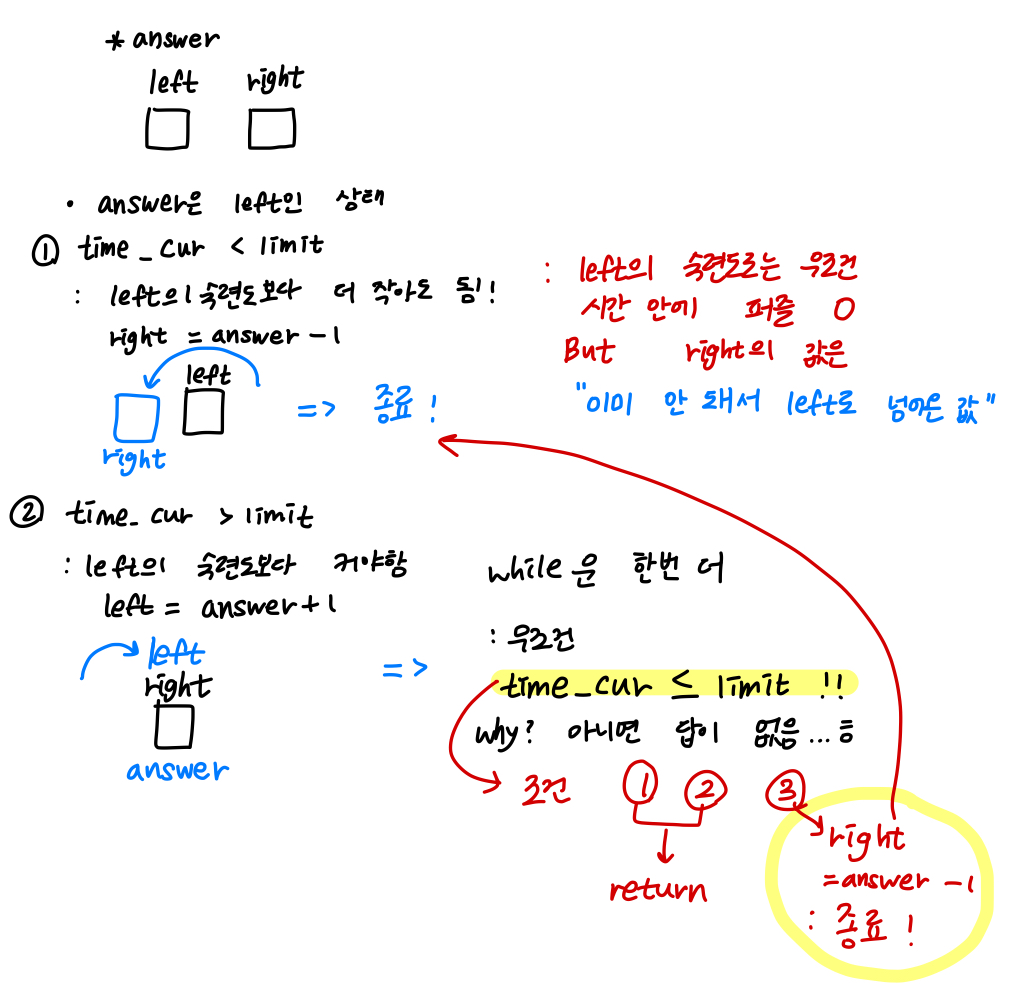 * answer
left right
• answer은 left인 상태
① time_cur < limit
: left의 숙련도보다 더 작아도 됨!
right = answer - 1
left
right
=> 종료!
: left의 숙련도로는 우조건
시간 안에 퍼즐 O
But right의 값은
"이미 안 돼서 left로 넘어온 값"
② time_cur > limit
: left의 숙련도보다 커야함
left = answer + 1
left
right
answer
=>
while 운 한번 더
: 우조건
time_cur ≤ limit !!
why? 아니면 답이 없음...ㅎ
조건 ① ② ③
return
right
= answer - 1
: 종료!